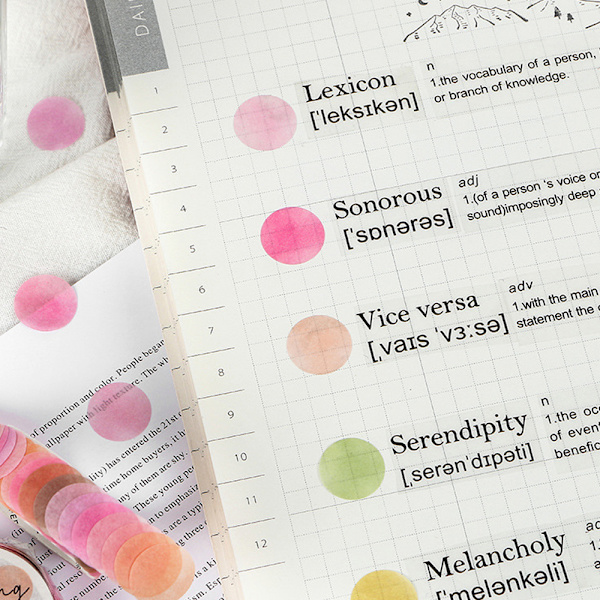 DAI
1
2
3
4
5
6
7
8
9
10
11
12
Lexicon
['leksɪkən]
n
1.the vocabulary of a person,
or branch of knowledge.
Sonorous
['sɒnərəs]
adj
1.(of a person 's voice or
sound)imposingly deep
Vice versa
[ˌvaɪs 'vɜːsə]
adv
1.with the main
statement the
Serendipity
[ˌserən'dɪpəti]
n
1.the occ
of event
benefic
Melancholy
['melənkəli]
ad
1.
of proportion and color, People began
allpaper with light texture. The wh
lity) has entered the 21st c
time home buyers, it
any of them are shy.
These young peo
to emphasizing
are a typi
using three